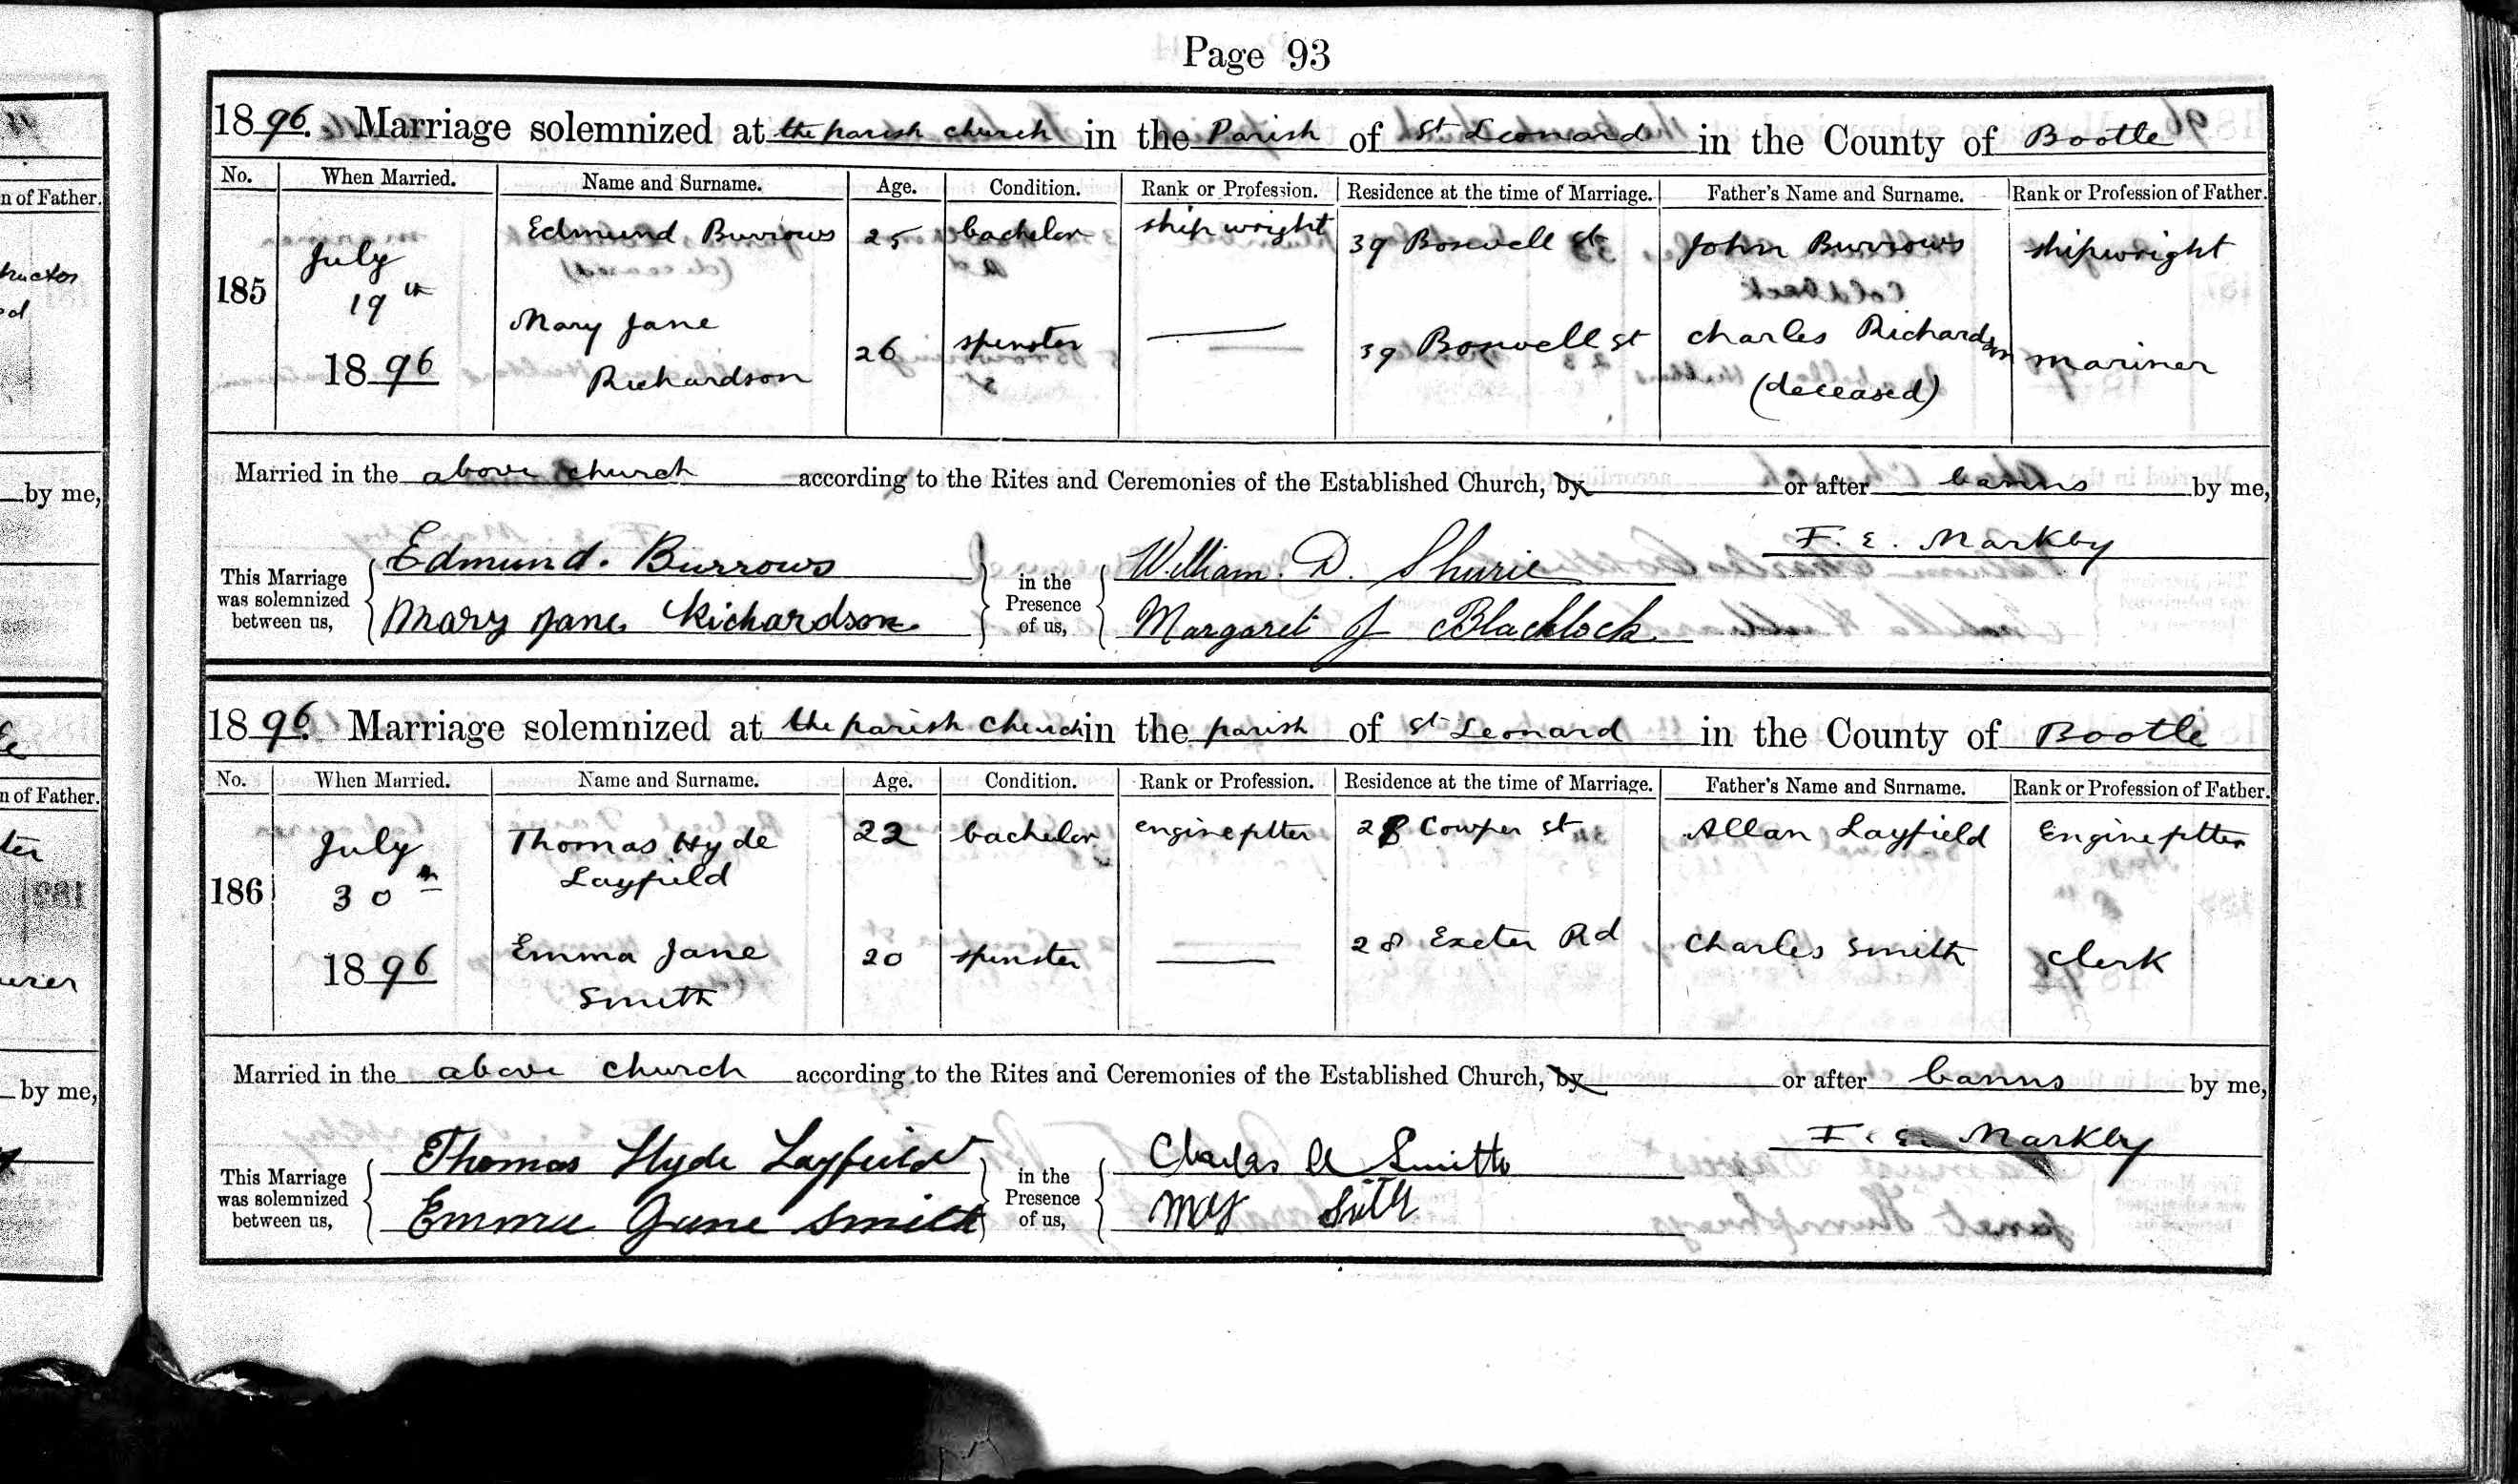 Page 93
1896. Marriage solemnized at the parish church in the Parish of St Leonard in the County of Bootle
No. When Married. Name and Surname. Age. Condition. Rank or Profession. Residence at the time of Marriage. Father's Name and Surname. Rank or Profession of Father.
185 July 19th 1896
Edmund Burrows 25 bachelor shipwright 39 Boswell St John Burrows shipwright
Mary Jane Richardson 26 spinster — 39 Boswell St Charles Richardson (deceased) mariner
Married in the above church according to the Rites and Ceremonies of the Established Church, by or after banns by me,
F. E. Markby
This Marriage was solemnized between us,
Edmund. Burrows
Mary Jane Richardson
in the Presence of us,
William. D. Shurie
Margaret J Blacklock
1896. Marriage solemnized at the parish church in the parish of St Leonard in the County of Bootle
No. When Married. Name and Surname. Age. Condition. Rank or Profession. Residence at the time of Marriage. Father's Name and Surname. Rank or Profession of Father.
186 July 30th 1896
Thomas Hyde Layfield 22 bachelor engine fitter 28 Cowper St Allan Layfield Engine fitter
Emma Jane Smith 20 spinster — 28 Exeter Rd Charles Smith Clerk
Married in the above church according to the Rites and Ceremonies of the Established Church, by or after banns by me,
F. E. Markby
This Marriage was solemnized between us,
Thomas Hyde Layfield
Emma Jane Smith
in the Presence of us,
Charles A Smith
n of Father.
by me,
n of Father.
by me,